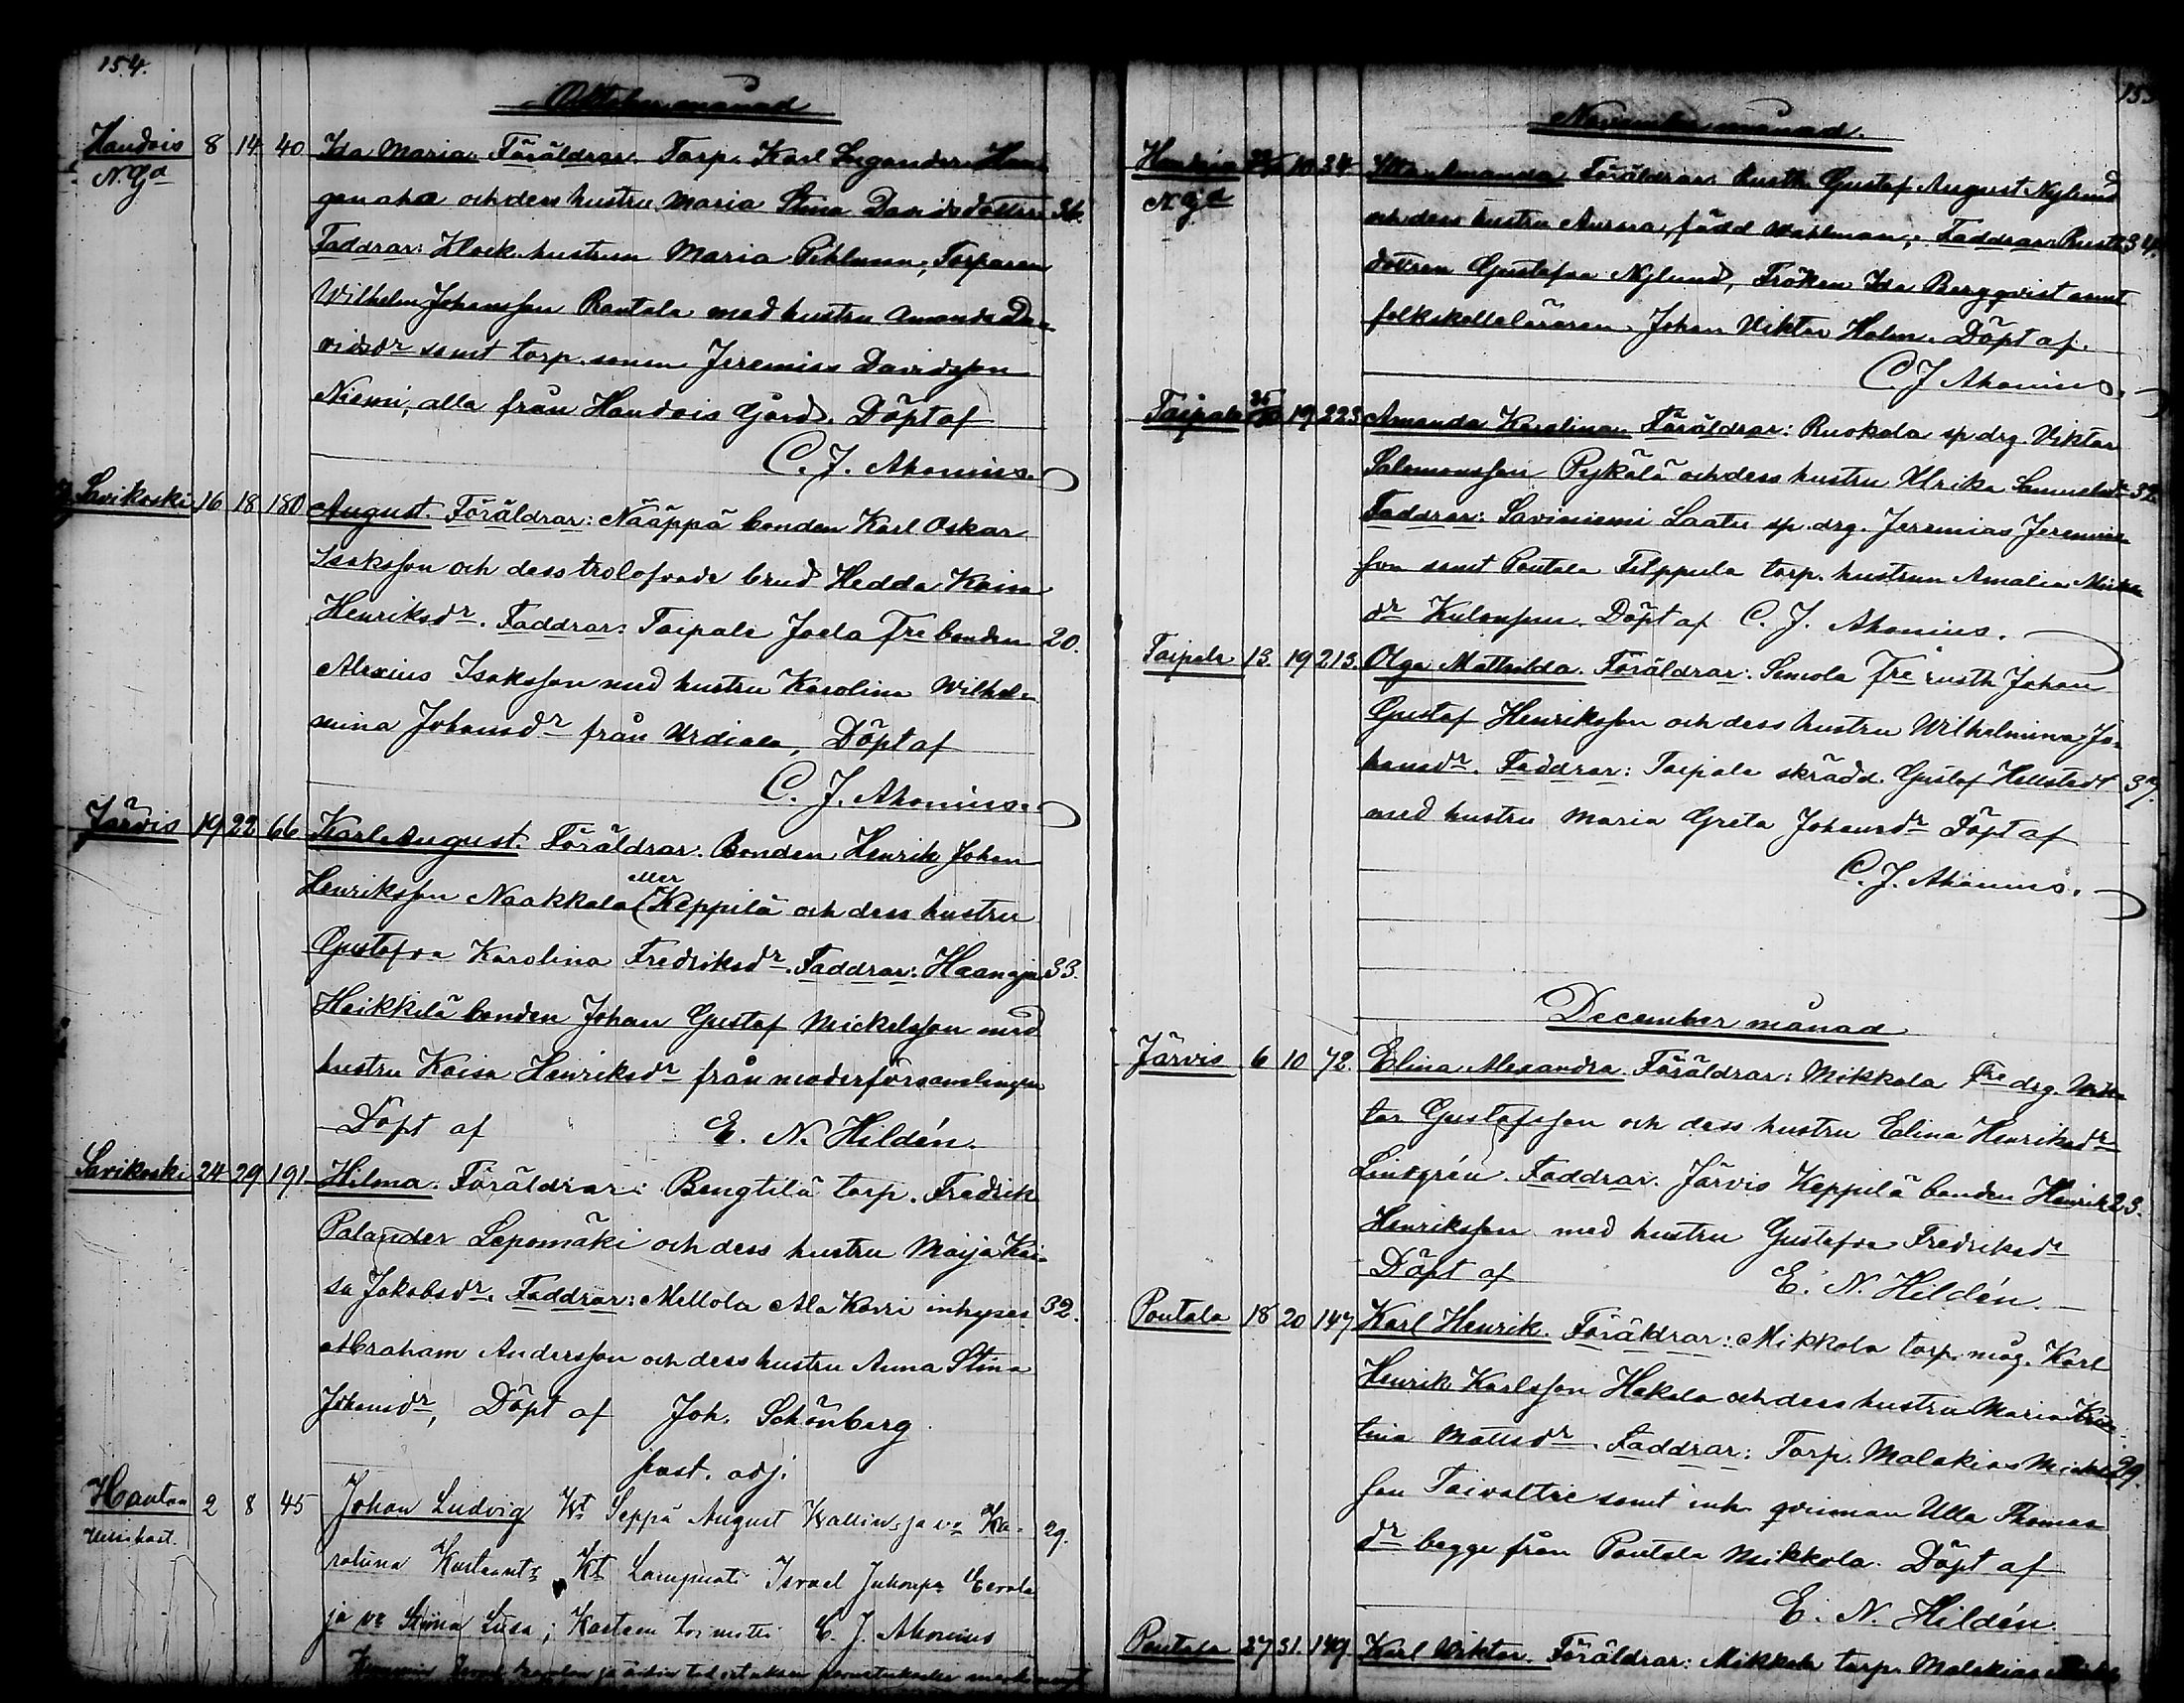 154.
Oktober månad
Haudois 8 14 40 Ida Maria. Föräldrar. Torp. Karl Legander Haa-
N. Gd ganoha och dess hustru Maria Stina Davidsdotter 36.
Faddrar: Klock. hustrun Maria Pihlman, Torparen
Wilhelm Johansson Rantala med hustru Amanda Da-
vidsdr samt torp. sonen Jeremias Davidsson
Niemi, alla från Haudois Gård. Döpt af
C. J. Ahonius.
Savikoski 16 18 180 August. Föräldrar: Nääppä bonden Karl Oskar
Isaksson och dess trolofvade brud Hedda Kaisa
Henriksdr. Faddrar: Taipale Jaela Fre bonden 20.
Alexius Isaksson med hustru Karolina Wilhel-
mina Johansdr från Urdiala, Döpt af
C. J. Ahonius.
Järvis 19 22 66 Karl August. Föräldrar. Bonden Henrik Johan
Henriksson Naakkala eller Keppilä och dess hustru
Gustafva Karolina Fredriksdr. Faddrar: Haanoja 33.
Heikkilä bonden Johan Gustaf Mickelsson med
hustru Kaisa Henriksdr från moderförsamlingen
Döpt af E. N. Hildén.
Savikoski 24 29 191 Hilma. Föräldrar: Bengtilä torp. Fredrik
Palander Lepomäki och dess hustru Maija Kai-
sa Jakobsdr. Faddrar: Mellola Ala Korri inhyses 32.
Abraham Andersson och dess hustru Anna Stina
Johansdr, Döpt af Joh. Schönberg
past. adj.
2 8 45 Johan Ludvig Wt Seppä August Wallin ja vo Ka- 29.
rolina Kustaant: Kt Lampuoti Israel Juhonp. Eerola
ja vo Stiina Liisa; Kasteen toimitti C. J. Ahonius
155
November månad.
N. Gd 10 34 Amanda Föräldrar. Rusth. Gustaf August Nylund
och dess hustru Aurora, född Wahlman, Faddrar: Rusth. 34.
dottren Gustafva Nylund, Fröken Ida Bergqvist samt
folkskolleläraren Johan Viktor Holm. Döpt af
C. J. Ahonius.
Taipale 19 223 Amanda Karolina. Föräldrar: Ruokola sp. drg. Viktor
Salomonsson Pykälä och dess hustru Ulrika Samuelsdr 32.
Faddrar: Saviniemi Laatu sp. drg. Jeremias Jeremias-
son samt Pontala Filppula torp. hustrun Amalia
dr Döpt af C. J. Ahonius.
Taipale 13 19 213 Olga Mathilda. Föräldrar: Simola Fre rusth Johan
Gustaf Henriksson och dess hustru Wilhelmina Jo-
hansdr. Faddrar: Taipale skrädd. Gustaf Hellstedt 37.
med hustru Maria Greta Johansdr Döpt af
C. J. Ahonius.
December månad
Järvis 6 10 72. Elina Alexandra. Föräldrar: Mikkola Fre drg. Wik-
tor Gustafsson och dess hustru Elina Henriksdr
Lindgrén. Faddrar. Järvis Keppilä bonden Henrik 23.
Henriksson med hustru Gustafva Fredriksdr
Döpt af E. N. Hildén.
Pontala 18 20 147 Karl Henrik. Föräldrar: Mikkola torp. måg. Karl
Henrik Karlsson Hakala och dess hustru Maria Kris-
tina Mattsdr. Faddrar: Torp. Malakias Mickels- 29.
son Taivaltie samt inh. qvinnan Ulla Thomas-
dr begge från Pontala Mikkola. Döpt af
E. N. Hildén.
Pontala 27 31. 149. Karl Viktor. Föräldrar: Mikkola torp. Malakias